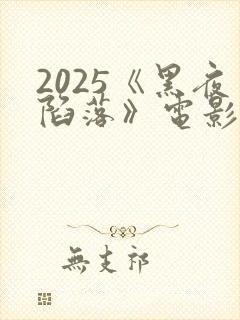 2025《黑夜
陷落》電影
無支祁